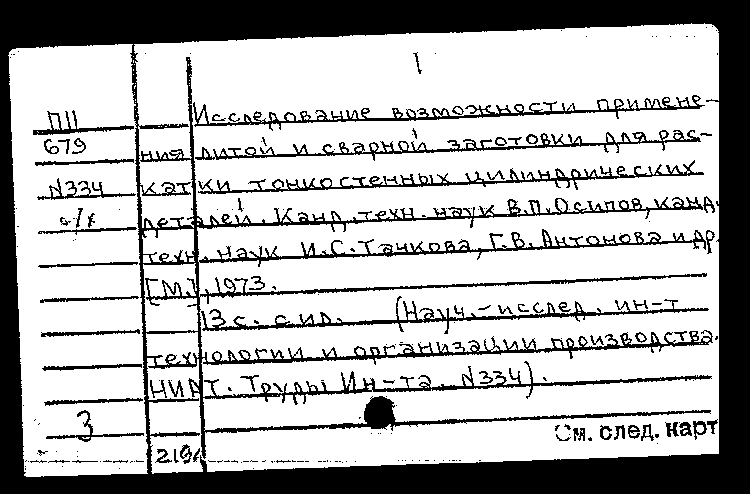 I
П11 Исследование возможности примене-
679 ния литой и сварной заготовки для рас-
N334 катки тонкостенных цилиндрических
деталей. Канд. техн. наук В.П.Осипов, канд.
техн. наук И.С.Танкова, Г.В. Антонова и др.
[М.], 1973.
13 с. с ил. (Науч.-исслед. ин-т
технологии и организации производства.
НИАТ. Труды Ин-та. N334).
3
См. след. карт